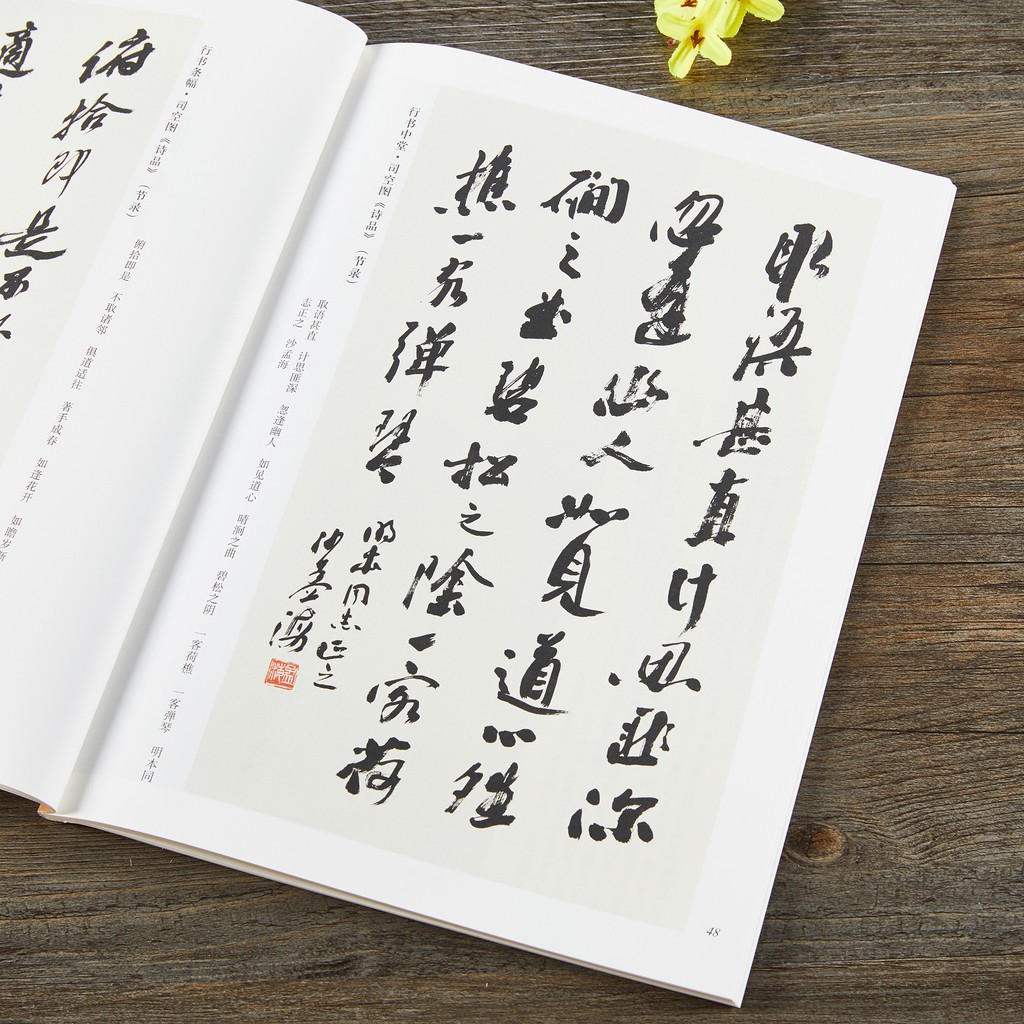 俯拾即是不
適
行书条幅·司空图《诗品》（节录） 俯拾即是 不取诸邻 俱道适往 著手成春 如逢花开 如瞻岁新
取語甚直計思匪深
忽逢幽人如見道心晴
磵之曲碧松之陰一客荷
樵一客彈琴
明本同志正之
沙孟海
行书中堂·司空图《诗品》（节录）
取语甚直 计思匪深 忽逢幽人 如见道心 晴涧之曲 碧松之阴 一客荷樵 一客弹琴 明本同
志正之 沙孟海
48